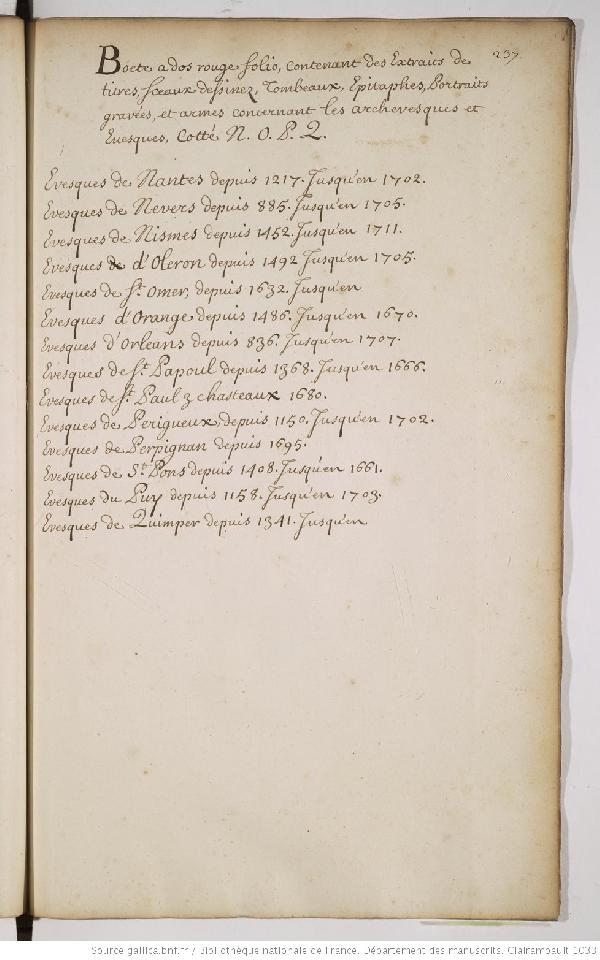 237
Boete a dos rouge folio, contenant des Extraits de
titres, sceaux dessinez, Tombeaux, Epitaphes, Portraits
gravées, et armes concernant les archevesques et
Evesques, Cotté N. O. P. Q.
Evesques de Nantes depuis 1217. Jusqu'en 1702.
Evesques de Nevers depuis 885. Jusqu'en 1705.
Evesques de Nismes depuis 1452. Jusqu'en 1711.
Evesques de d'Oleron depuis 1492 Jusqu'en 1705.
Evesques de St. Omer, depuis 1632. Jusqu'en
Evesques d'Orange depuis 1486. Jusqu'en 1670.
Evesques d'Orleans depuis 836. Jusqu'en 1707.
Evesques de St. Papoul depuis 1368. Jusqu'en 1666.
Evesques de St. Paul 3 chasteaux 1680.
Evesques de Perigueux, depuis 1150. Jusqu'en 1702.
Evesques de Perpignan depuis 1695.
Evesques de St. Pons depuis 1408. Jusqu'en 1661.
Evesques du Puy depuis 1158. Jusqu'en 1703.
Evesques de Quimper depuis 1341. Jusqu'en
Source gallica.bnf.fr / Bibliothèque nationale de France. Département des manuscrits. Clairambault 1033